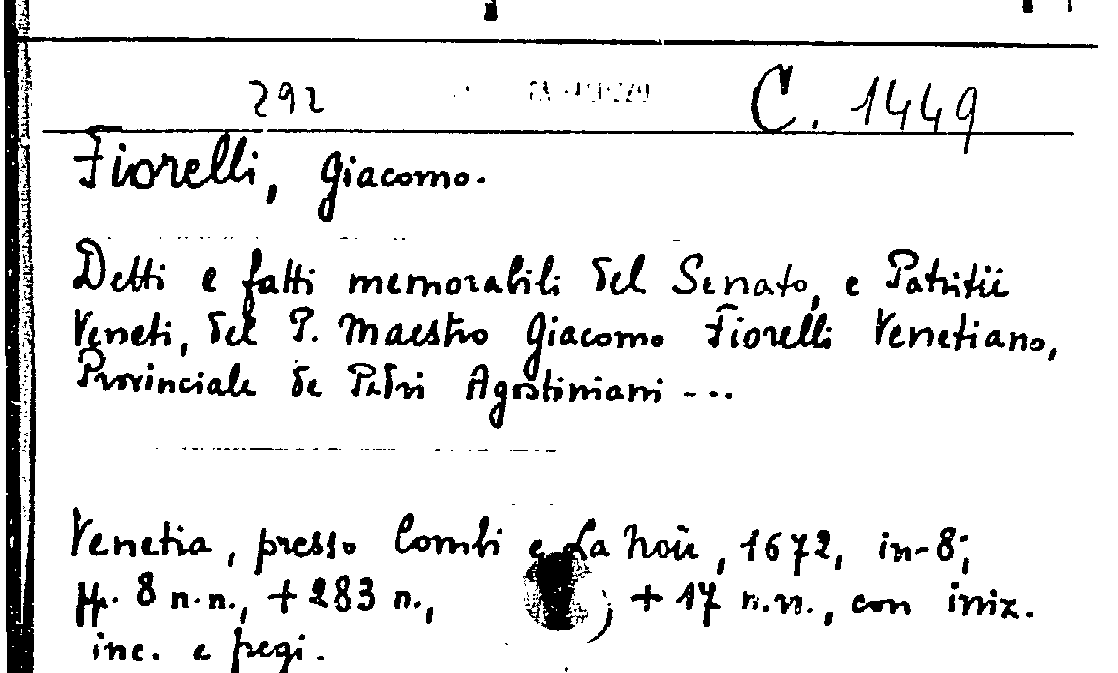 292 C. 1449
Fiorelli, Giacomo.
Detti e fatti memorabili del Senato, e Patritii
Veneti, del P. Maestro Giacomo Fiorelli Venetiano,
Provinciale de Padri Agostiniani ---
Venetia, presso Combi e La Noù, 1672, in-8;
pp. 8 n.n., + 283 n., + 17 n.n., con iniz.
inc. e fregi.